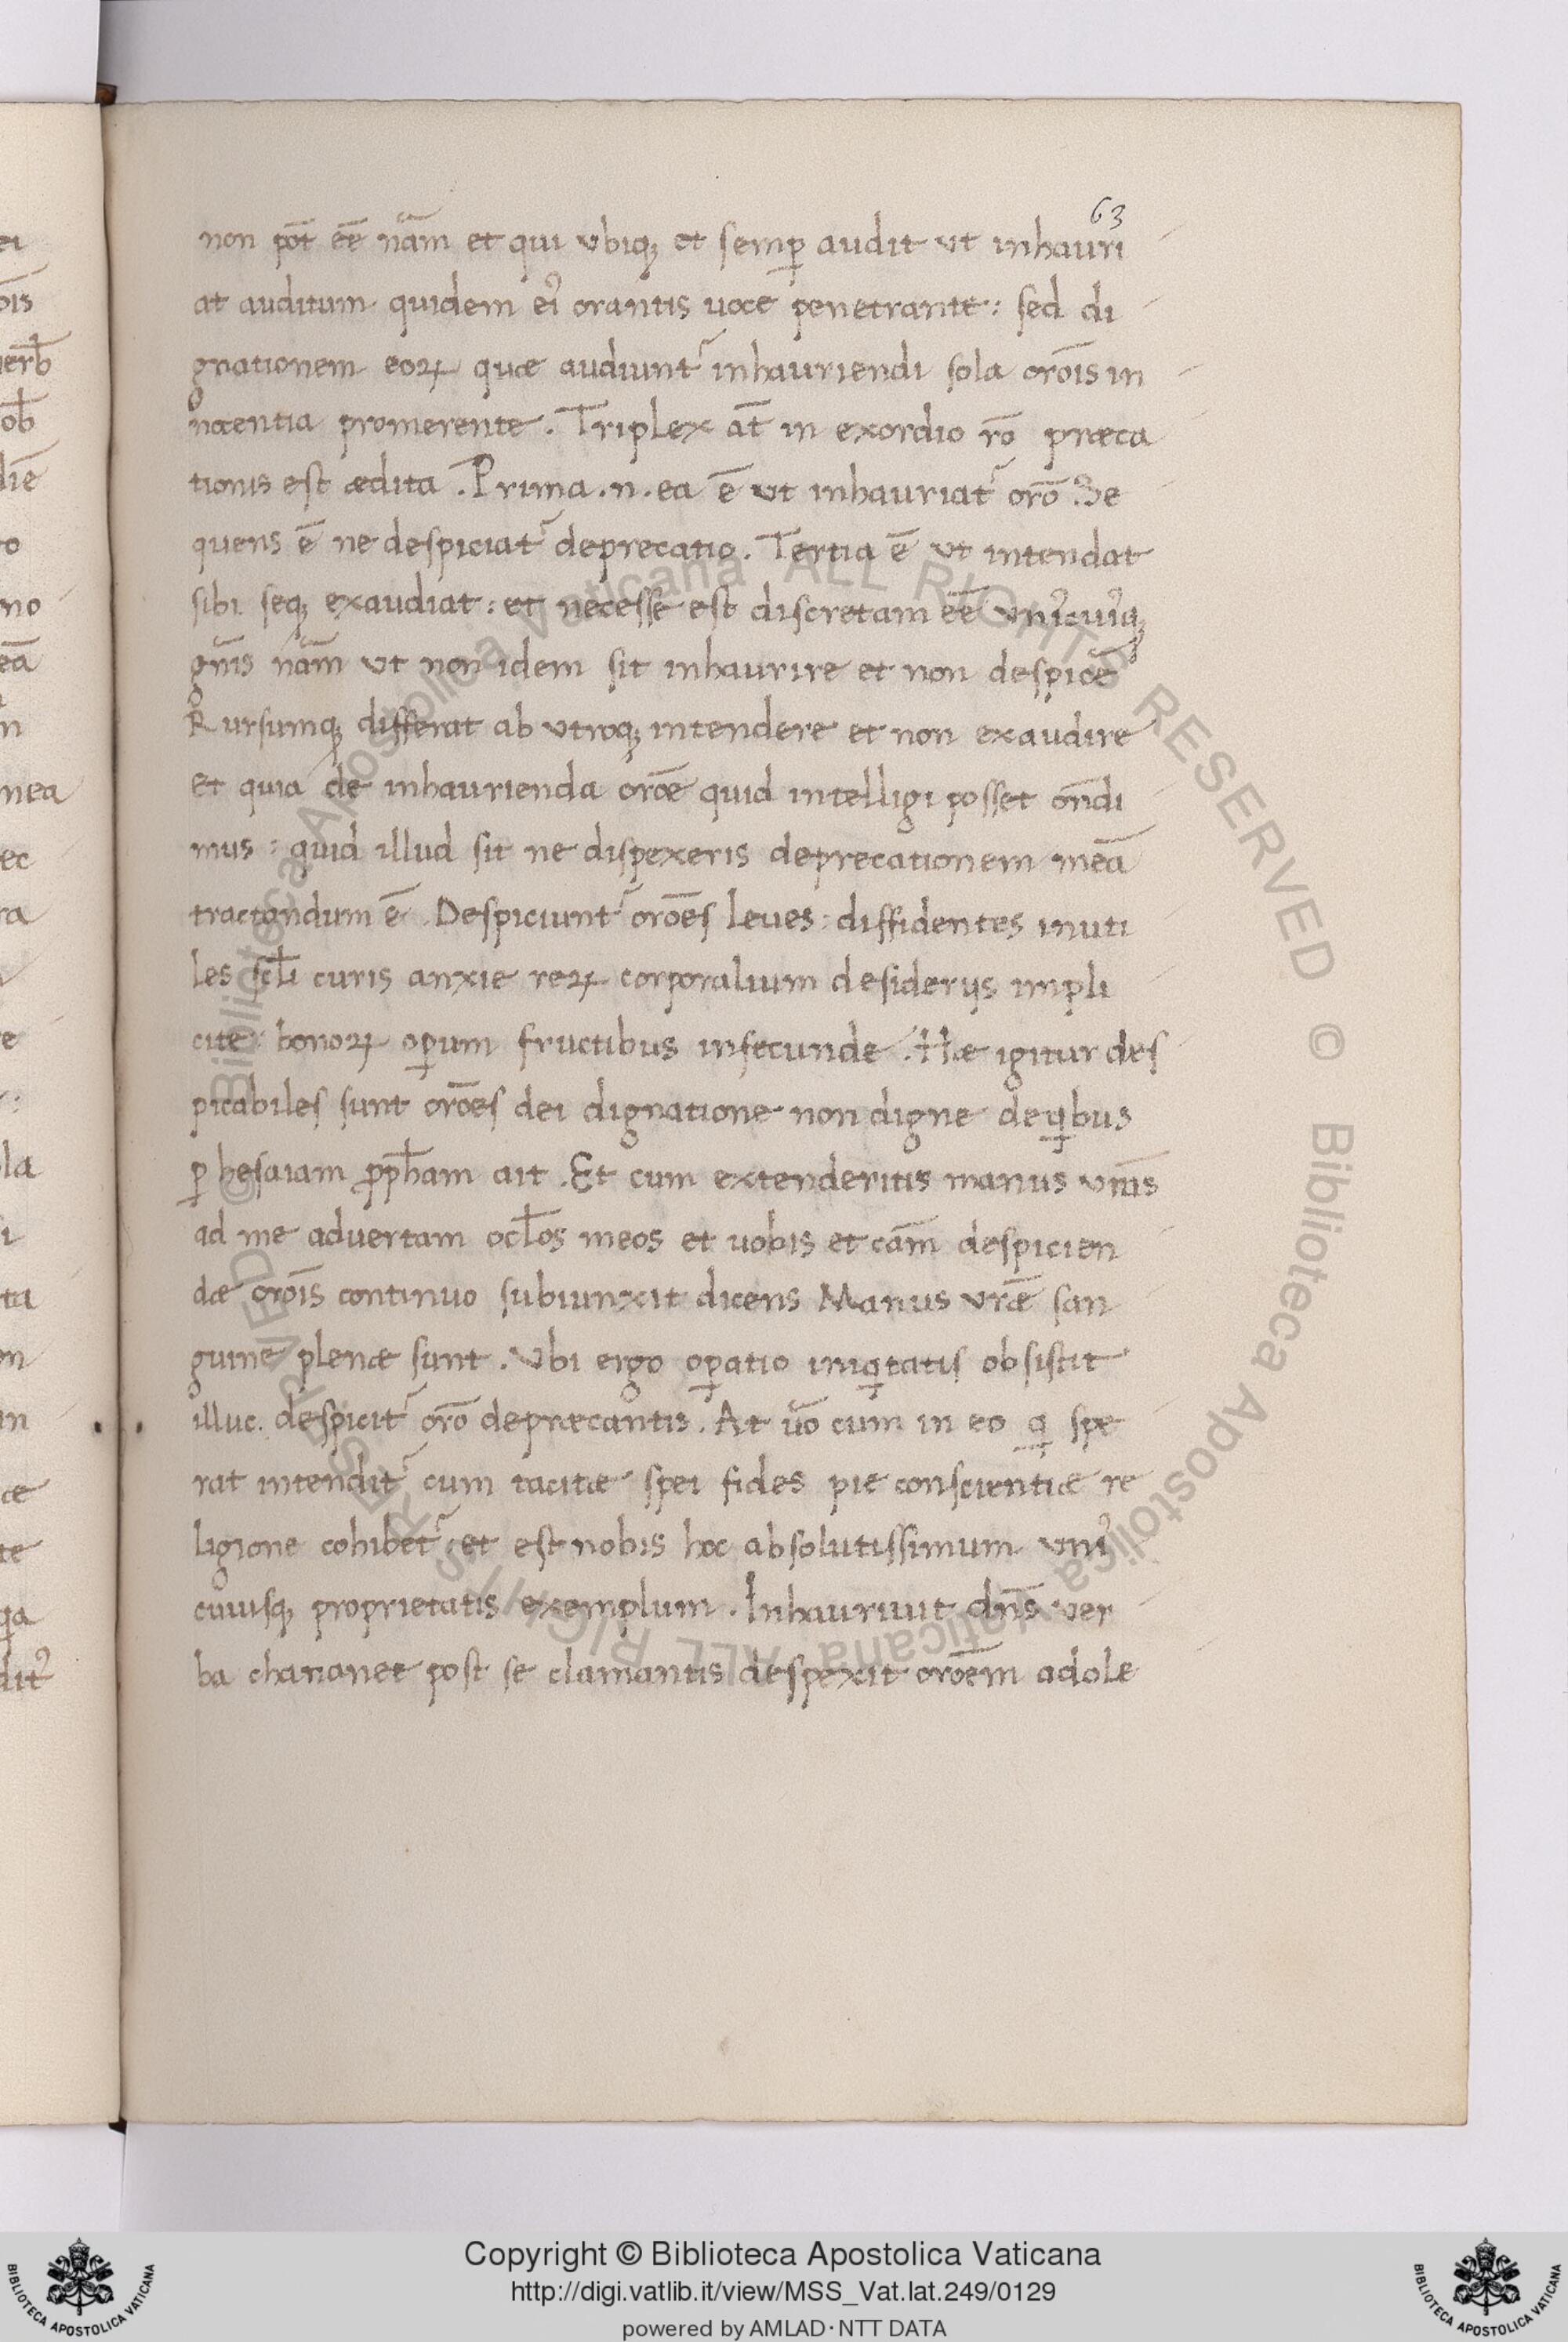 63
non pōt ēē nām et qui vbiq; et semꝑ audit vt inhauri
at auditum quidem eiꝰ orantis uoce penetrante: sed di
gnationem eoꝝ quæ audiunt᷑ inhauriendi sola orōis in
nocentia promerente. Triplex āt in exordio rō præca
tionis est ædita. Prima .n. ea ē vt inhauriat᷑ orō Se
quens ē ne despiciat᷑ deprecatio. Tertia ē vt intendat
sibi seq; exaudiat: et necesse est discretam ēē vniꝰcuiꝰq;
gn̄is nām vt non idem sit inhaurire et non despicē
Rursumq; differat ab vtroq; intendere et non exaudire
et quia de inhaurienda orōe quid intelligi posset on̄di
mus: quid illud sit ne dispexeris deprecationem meā
tractandum ē. Despiciunt᷑ orōes leues: diffidentes inuti
les sclī curis anxie reꝝ corporalium desiderijs impli
cite: bonoꝝ oꝑum fructibus infecunde. Hæ igitur des
picabiles sunt orōes dei dignatione non digne de qbus
ꝑ hesaiam ꝓpham ait. Et cum extenderitis manus vr̄is
ad me aduertam oclos meos et uobis et cām despicien
dæ orōis continuo subiunxit dicens Manus vrǣ san
guine plenæ sunt. Vbi ergo oꝑatio iniqtatis obsistit
illuc. despicit᷑ orō depræcantis. At uō cum in eo q spe
rat intendit᷑ cum tacitæ spei fides pie conscientiæ re
ligione cohibet᷑: et est nobis hoc absolutissimum vniꝰ
cuiusq; proprietatis exemplum. Inhauriuit dn̄s ver
ba chananee post se clamantis despexit orōem adole
ei
ōis
mea
ec
ra
la
ta
in
te
Copyright © Biblioteca Apostolica Vaticana
http://digi.vatlib.it/view/MSS_Vat.lat.249/0129
powered by AMLAD·NTT DATA
BIBLIOTECA APOSTOLICA VATICANA
BIBLIOTECA APOSTOLICA VATICANA
© Biblioteca Apostolica Vaticana ALL RIGHTS RESERVED © Biblioteca Apostolica Vaticana ALL RIGHTS RESERVED